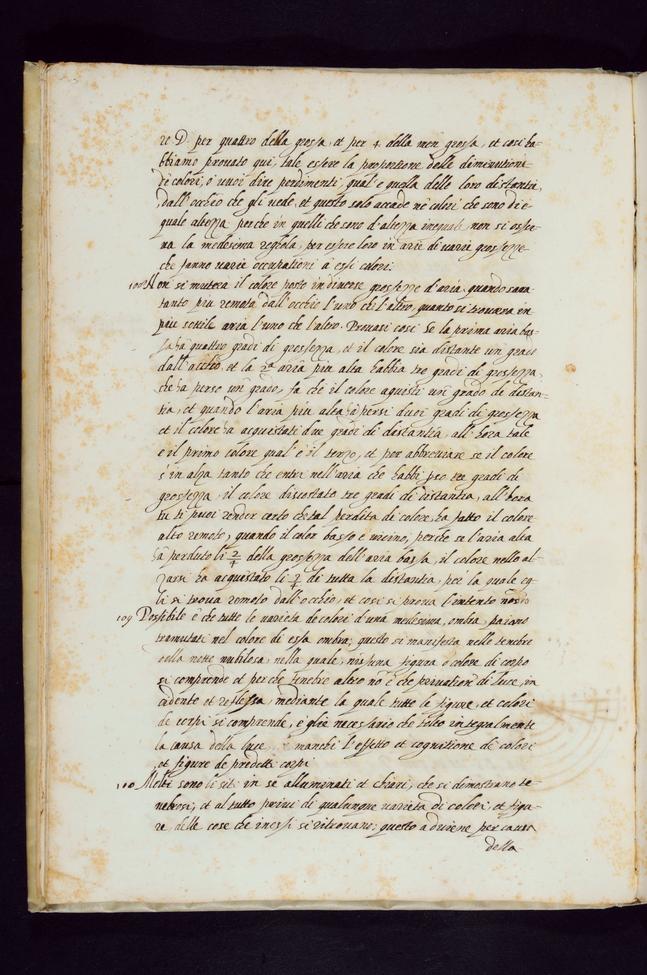 re D. per quattro della grossa, et per 4 della men grossa, et cosi ha-
bbiamo prouato qui, tale essere la proportione delle diminutioni
de colori, ò uuoi dire perdimenti, qual'e quella delle loro distantie
dall'occhio che gli uede, et questo solo accade ne colori che sono di e-
guale altezza, perche in quelli che sono d'altezza ineguale non si osser-
ua la medesima reghola, per essere loro in arie di uarie grossezze
che fanno uarie occupationi à essi colori.
108 Non si mutera il colore posto in diuerse grossezze d'aria, quando sara
tanto piu remoto dall'occhio l'uno che l'altro, quanto si trouera in
piu sottile aria l'uno che l'altro. Prouasi cosi. Se la prima aria bas-
sa ha quattro gradi di grossezza, et il colore sia distante un grado
dall'occhio, et la 2a aria piu alta habbia tre gradi di grossezza,
che ha perso un grado, fa che il colore aquisti un grado de distan-
tia, et quando l'aria piu alta ha persi duoi gradi di grossezza
et il colore ha acquistati due gradi di distantia, all'hora tale
e il primo colore qual'è il terzo, et per abbreuiare se il colore
s'in alza tanto che entri nell'aria che habbi perso tre gradi di
grossezza, il colore discostato tre gradi di distantia, all'hora
tu ti puoi render certo che tal perdita di colore ha fatto il colore
alto remoto, quando il color basso e uicino, perche se l'aria alta
ha perduto li 2/4 della grossezza dell'aria bassa, il colore nello al-
zarsi ha acquistato li 2/4 di tutta la distantia, per la quale eg-
li si troua remoto dall'occhio, et cosi si proua l'intento nostro
109 Possibile e che tutte le uarieta de colori d'una medesima, ombra paiano
tramutati nel colore di essa ombra; questo si manifesta nelle tenebre
della notte nubilosa, nella quale nissuna figura o colore di corpo
si comprende et perche tenebre altro nō è che priuation di luce, in
cidente et reflessa, mediante la quale tutte le figure, et colori
de corpi si comprende, e gliè necessario che tolto integralmente
la causa della luce manchi l'effetto et cognitione de colori
et figure de predetti corpi
110 Molti sono li siti in se alluminati et chiari, che si dimostrano te-
nebrosi, et al tutto priui di qualunque uarieta di colori, et figu-
re, delle cose che in essi si ritrouano; questo aduiene per causa
della